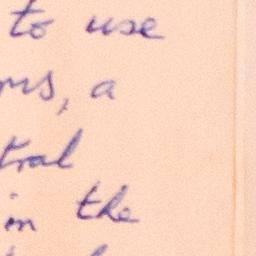 to use
ms, a
tral
in the